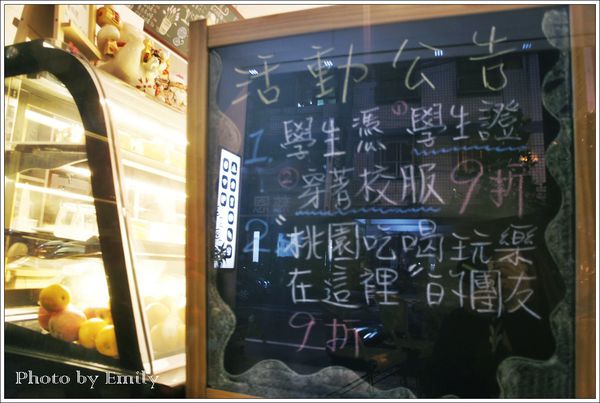 活動公告
1. 學生憑①學生證
②穿著校服9折
2. "桃園吃喝玩樂
在這裡"的團友
9折
Photo by Emily